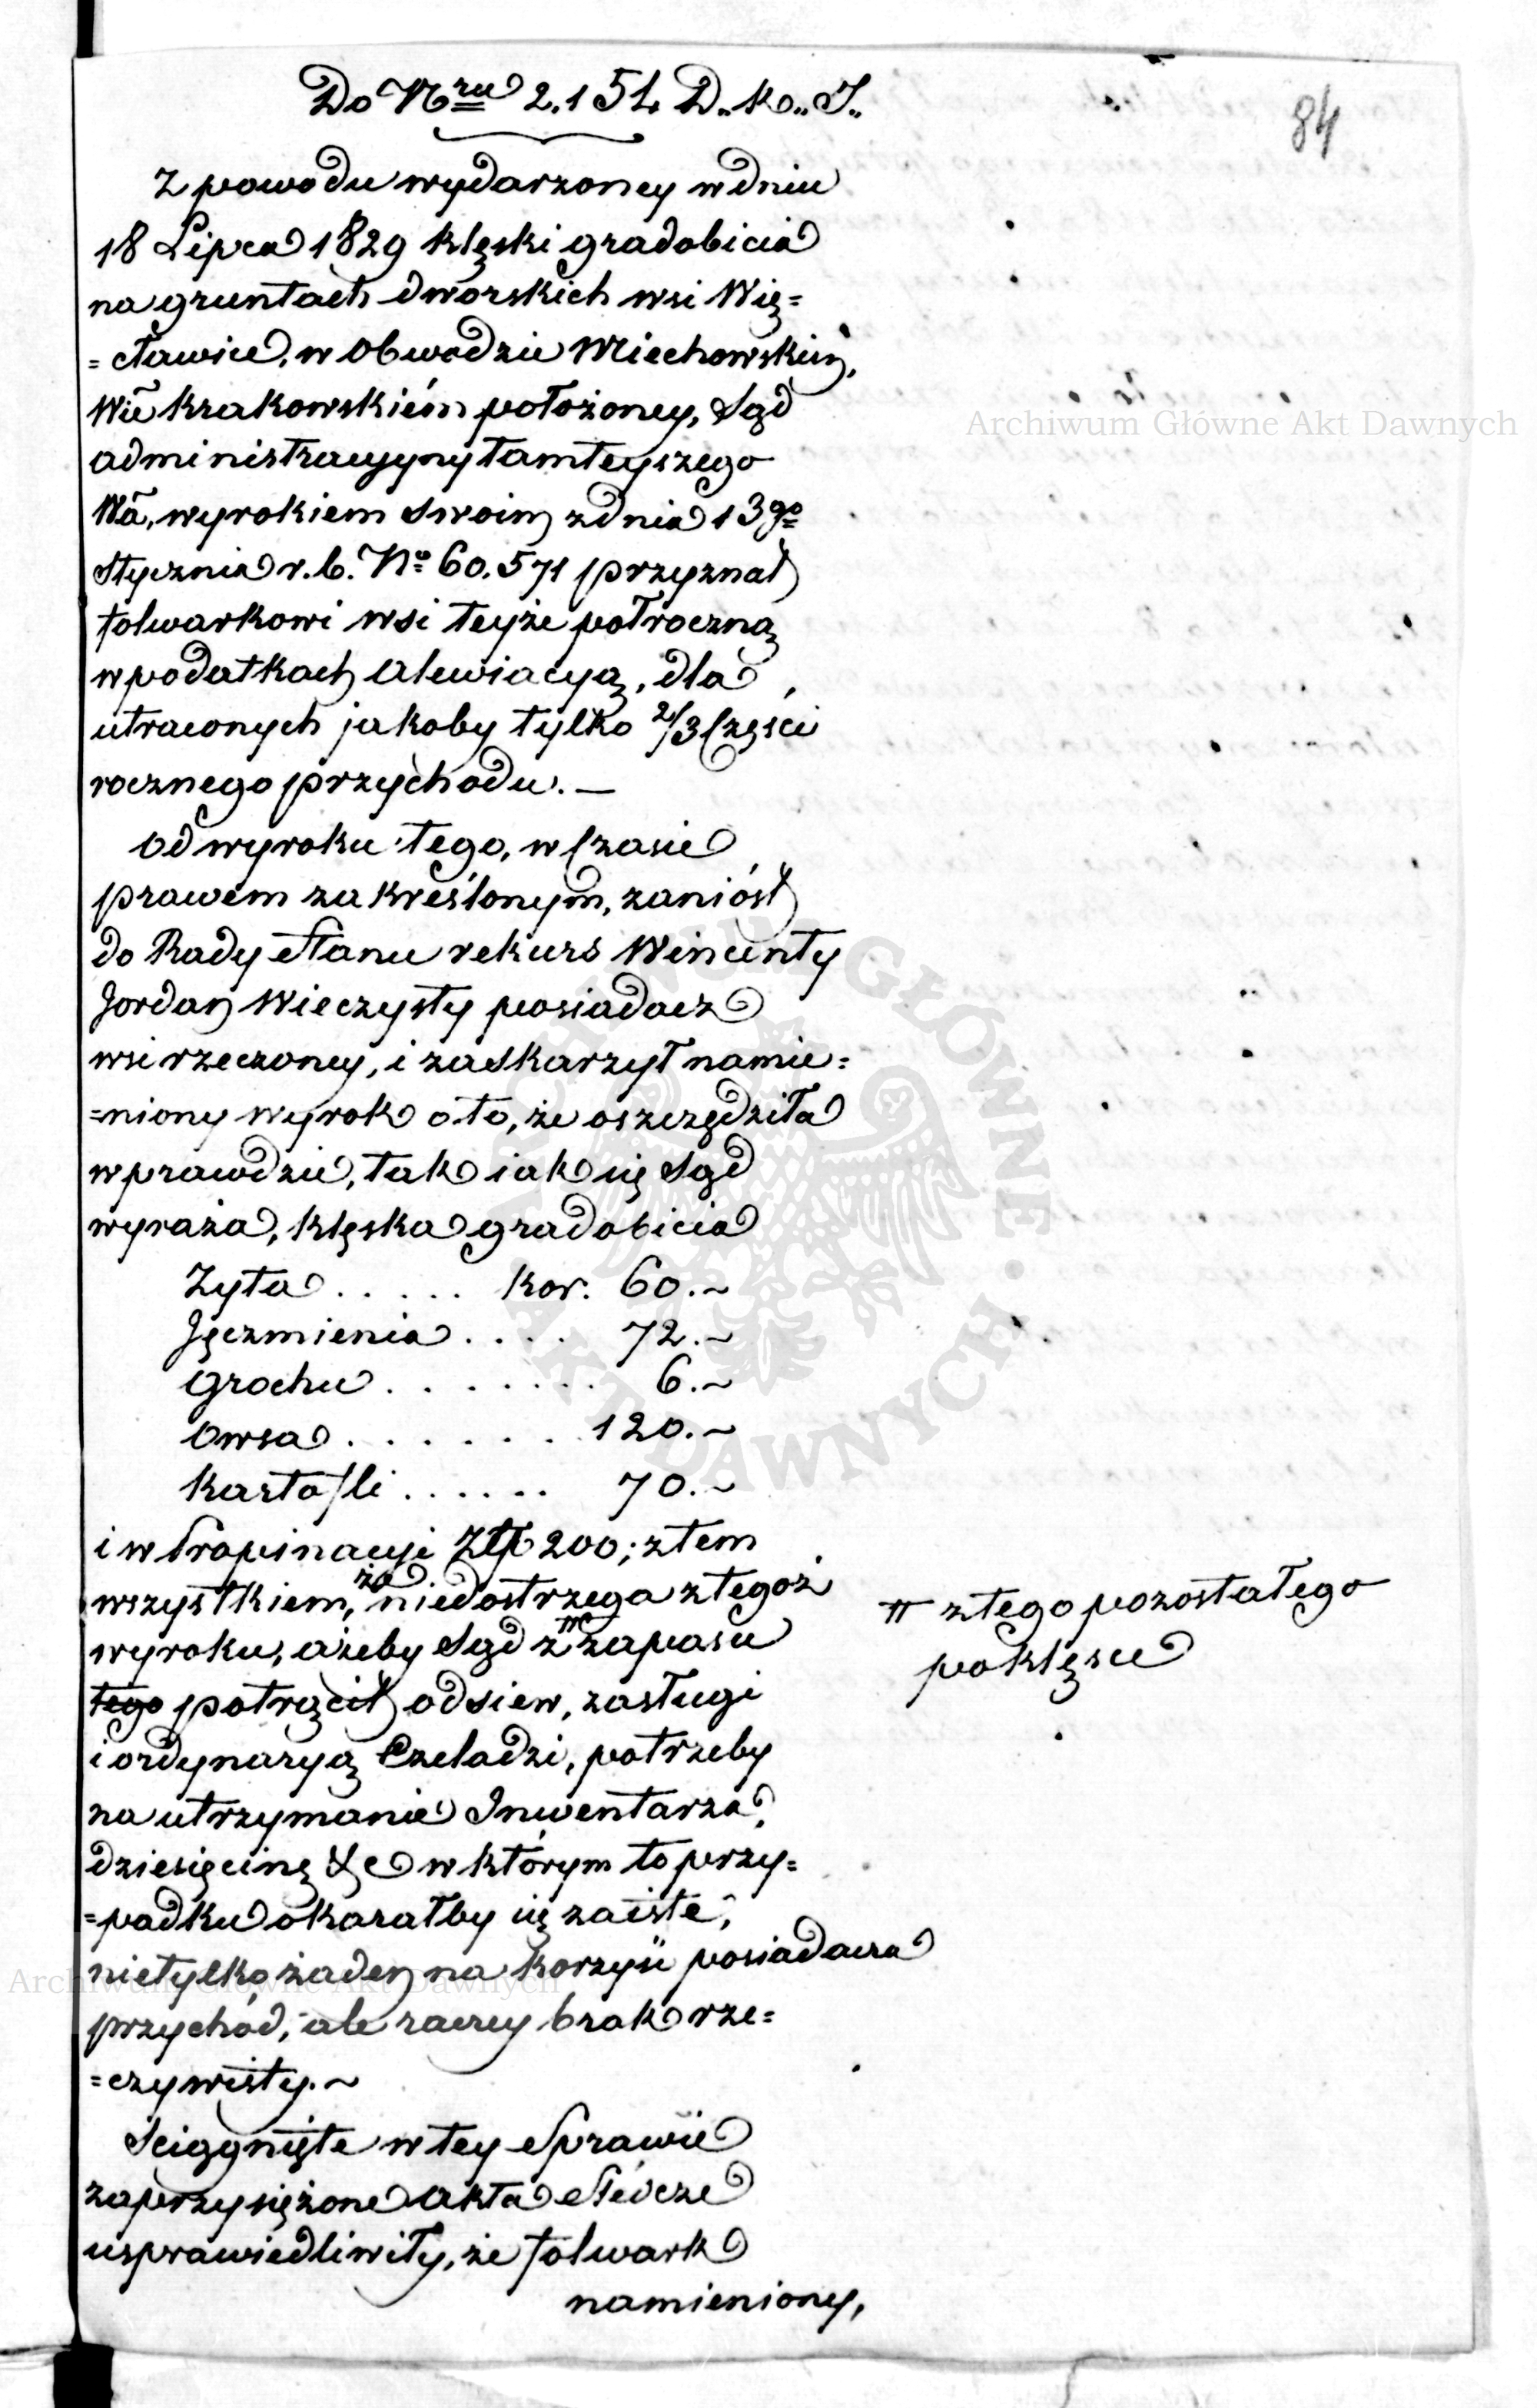 Do Nru 2.154 D.. K.. I..
84
Z powodu wydarzoney w dniu
18 Lipca 1829 klęski gradobicia
na gruntach dworskich wsi Wię=
=cławice, w Obwodzie Miechowskim,
Wie Krakowskiém położoney, Sąd
administracyyny tamteyszego
Wa, wyrokiem swoim z dnia 13go
Stycznia r. b. No 60.571 przyznał
folwarkowi wsi teyże półroczną
w podatkach alewiacyą, dla
utraconych jakoby tylko 2/3 Części
rocznego przychodu. —
Od wyroku tego, w Czasie
prawem zakreślonym, zaniósł
do Rady Stanu rekurs Wincenty
Jordan Wieczysty posiadacz
wsi rzeczoney, i zaskarzył namie=
=niony wyrok o to, że oszczędziła
wprawdzie, tak iak się Sąd
wyraża, klęska gradobicia
Zyta ..... kor. 60.~
Jęczmienia .... 72.~
Grochu ........ 6.~
Owsa ....... 120.~
Kartofli ...... 70.~
i w Propinacyi Złp 200; z tem
wszystkiem, za niedostrzega z tegoż
wyroku, ażeby Sąd z # zapasu
tego potrącił odsiew, zasługi
i ordynaryą Czeladzi, potrzeby
na utrzymanie Inwentarza,
dziesięcinę &c w którym to przy=
=padku okazałby się zaiste,
nietylko żaden na korzyść posiadacza
przychód, ale raczey brak rze=
=czywisty. ~
Sciągnięte w tey Sprawie
zaprzysiężone akta Śledcze
usprawiedliwiły, że folwark
namieniony,
# z tego pozostałego
po klęsce
Archiwum Główne Akt Dawnych
Archiwum Główne Akt Dawnych
ARCHIWUM GŁÓWNE · AKT DAWNYCH ·